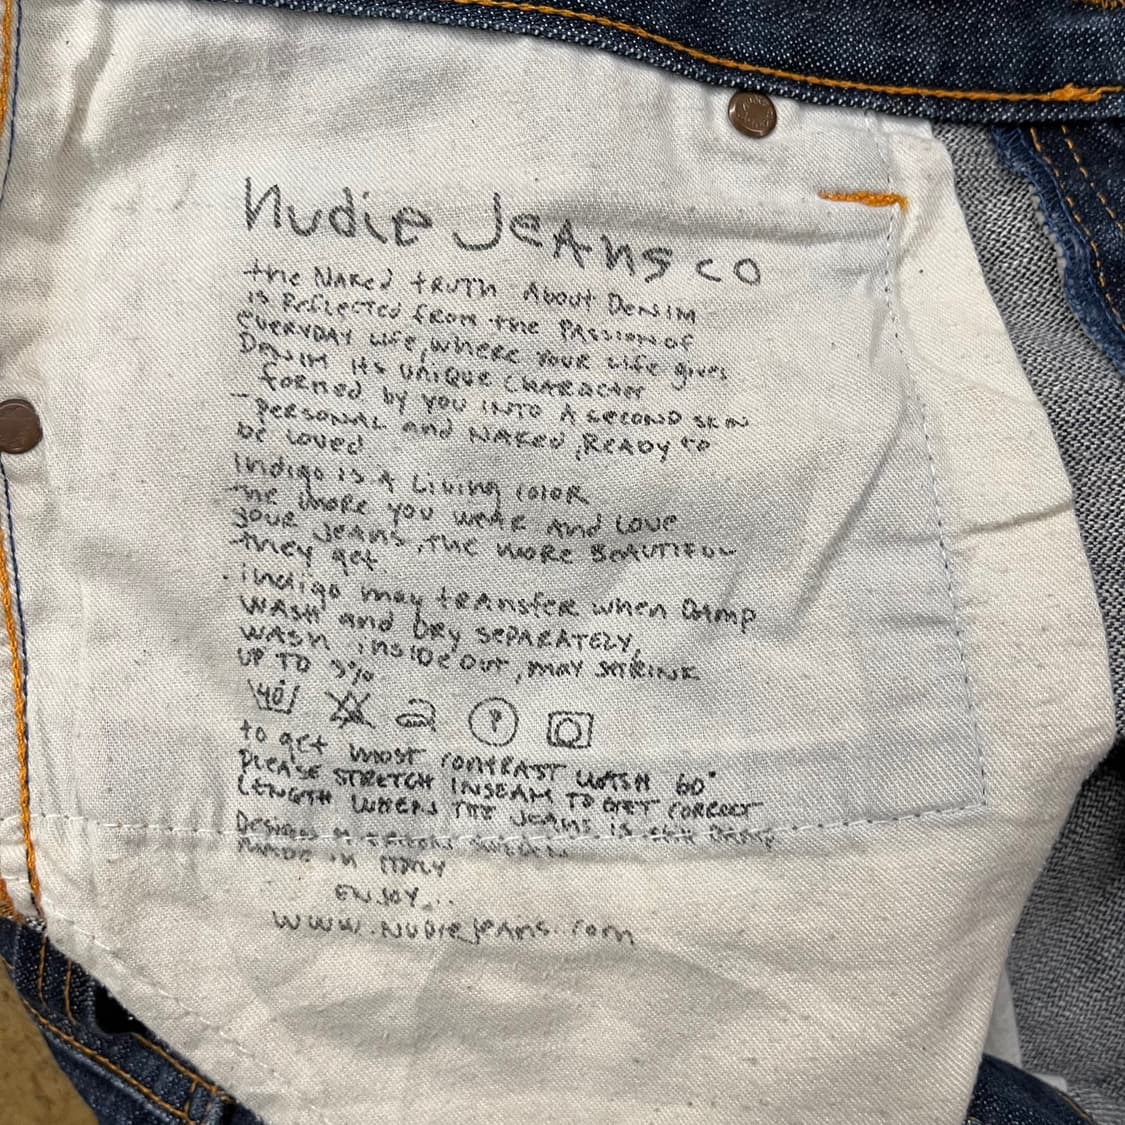 Nudie Jeans co
the Naked truth About Denim
is Reflected from the Passion of
everyday Life, where your life gives
Denim its unique character
formed by you into A second skin
- personal and naked, Ready to
be loved
Indigo is A Living color
the more you wear and love
your jeans, the more Beautiful
they get.
. indigo may transfer when Damp
wash and dry separately,
wash inside out, may shrink
up to 3%
40°
P
to get most contrast wash 60°
please stretch inseam to get correct
length when the jeans is
Designed Sweden
made in Italy
Enjoy...
www.nudiejeans.com